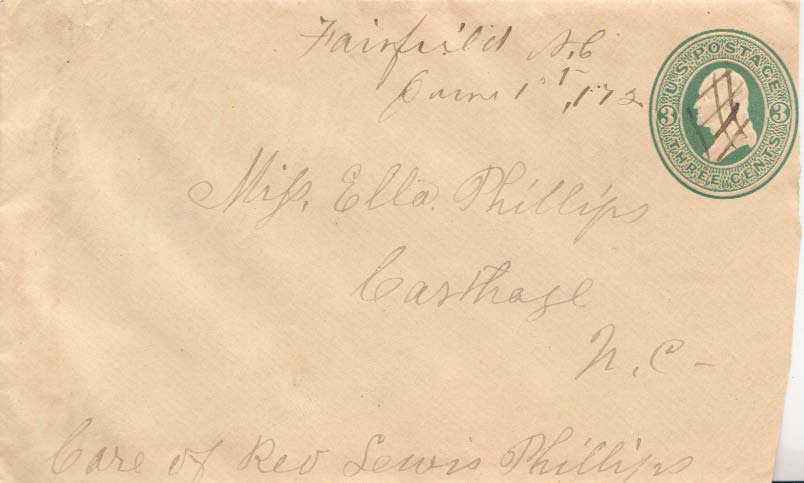 Fairfield N.C
June 1st, 172
U.S. POSTAGE
3 3
THREE CENTS
Miss. Ella Phillips
Carthage
N. C -
Care of Rev Lewis Phillips